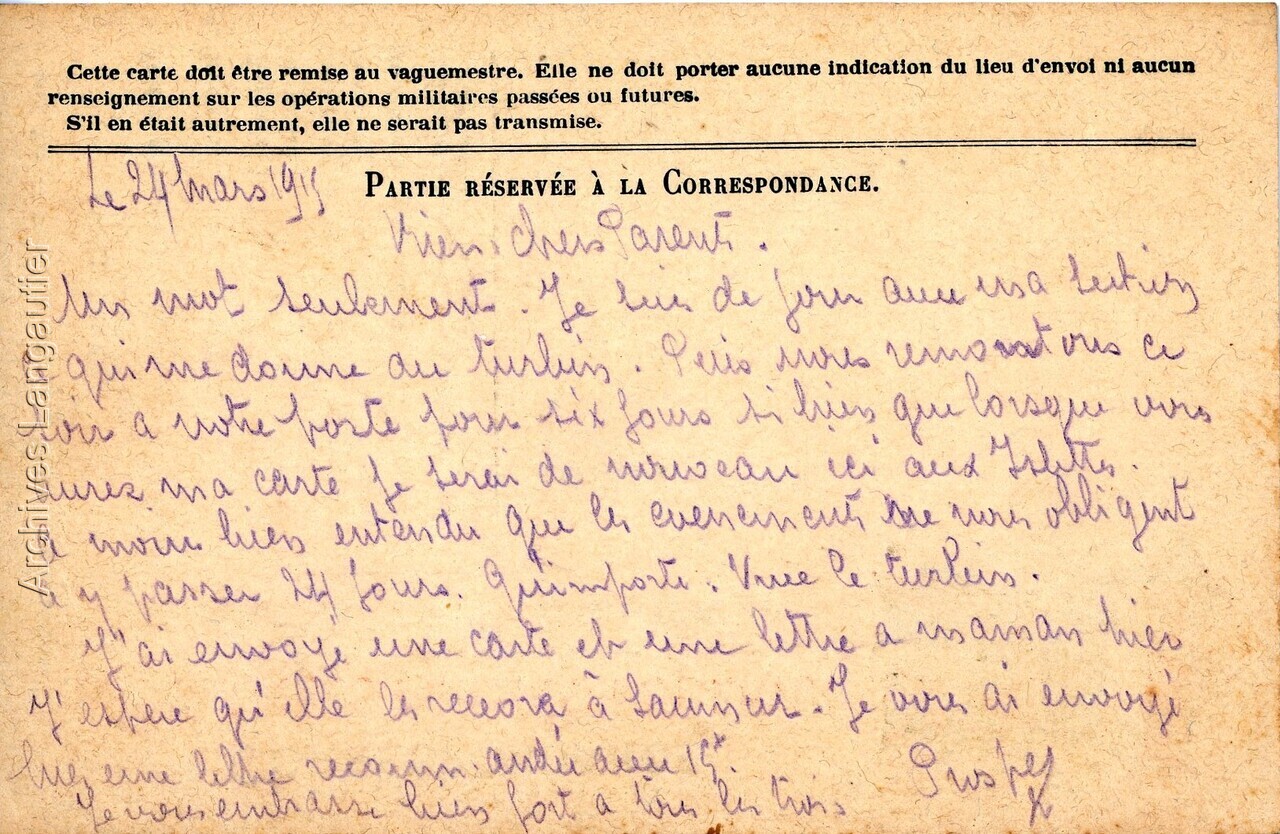 Cette carte doit être remise au vaguemestre. Elle ne doit porter aucune indication du lieu d'envoi ni aucun
renseignement sur les opérations militaires passées ou futures.
S'il en était autrement, elle ne serait pas transmise.
Le 24 Mars 1915
PARTIE RÉSERVÉE À LA CORRESPONDANCE.
Bien chers Parents.
Un mot seulement. Je suis de jour avec ma section
qui me donne du turbin. Puis nous remontons ce
soir a notre poste pour six jours si bien que lorsque vous
aurez ma carte je serai de nouveau ici aux Islettes.
a moins bien entendu que les evenements ne nous obligent
a y passer 24 jours. Qu'importe. Vive le turbin.
J'ai envoyé une carte et une lettre a maman hier
J'espère qu'elle les recevra à Saumur. Je vous ai envoyé
hier une lettre recommandée avec 15f.
Je vous embrasse bien fort a tous les trois
Prosper
Archives Langautier